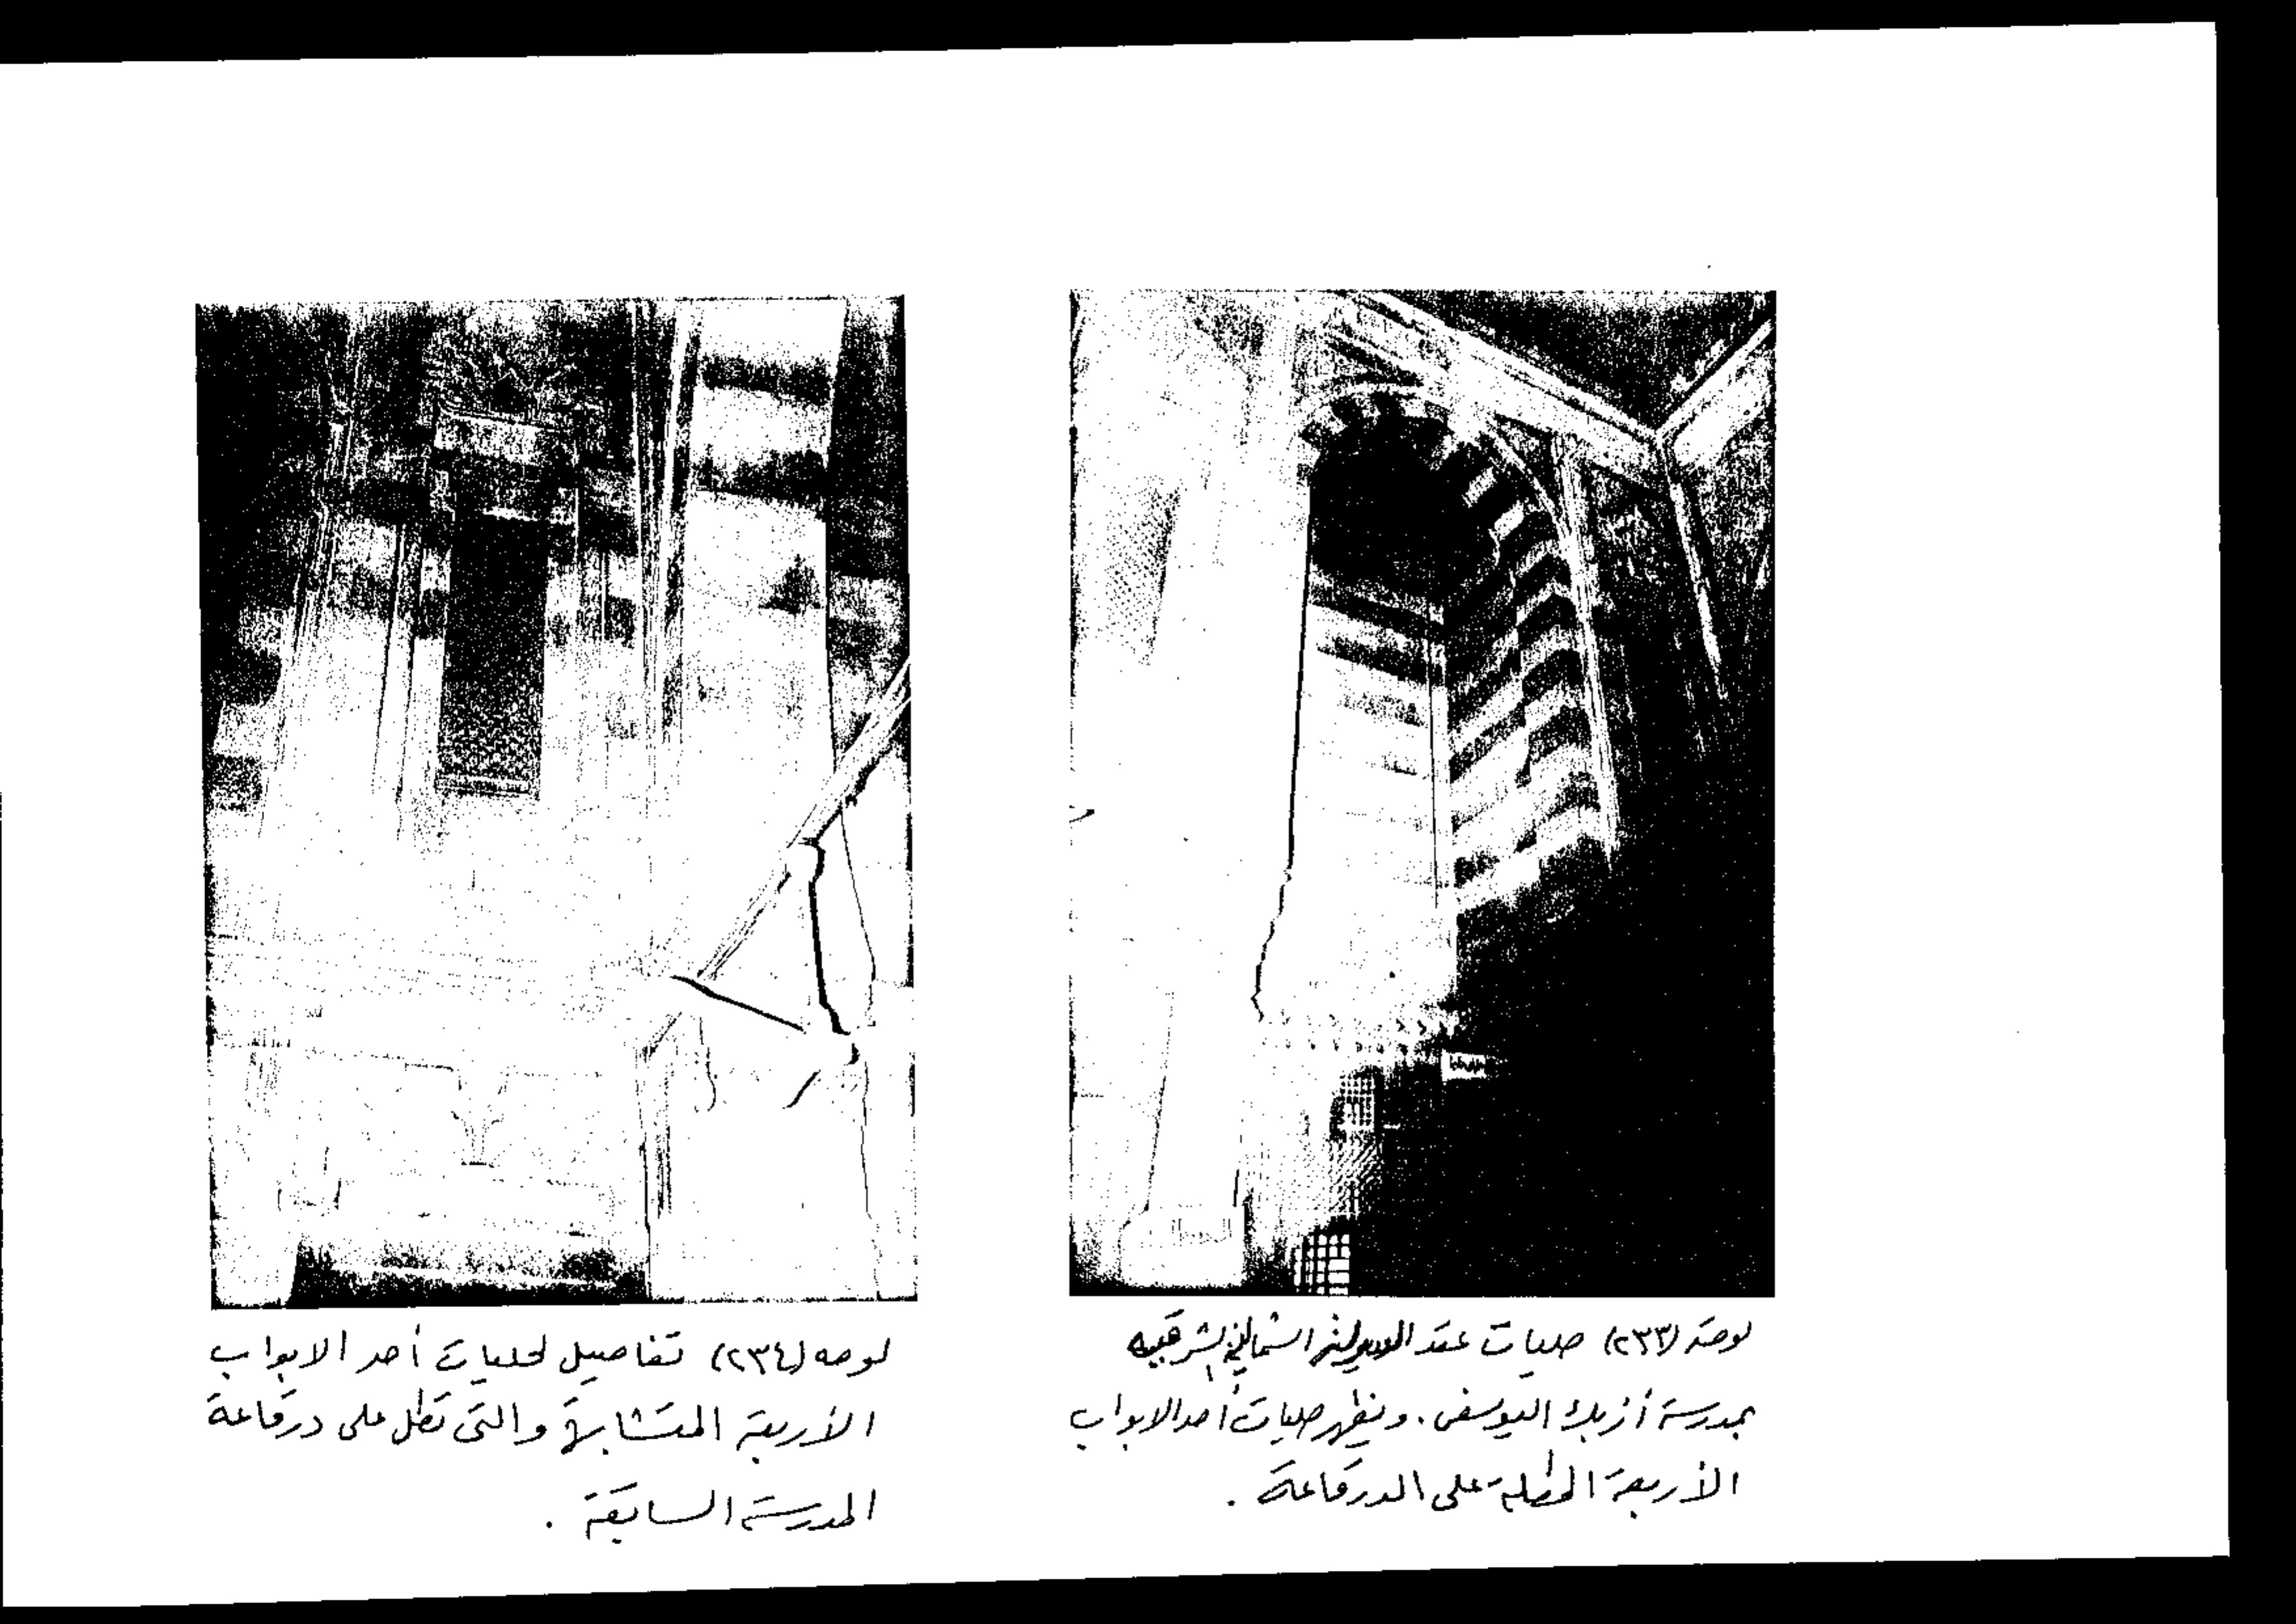 لوحة (٢٣٣) حليات عقد الشمالية الشرقيه
بمدرسة أزبك اليوسفى . ويظهر حليات أحد الابواب
الأربعة المطلة على الدرقاعة .
لوحه (٢٣٤) تفاصيل لحليات أحد الابواب
الأربعة المتشابهة والتى تطل على درقاعة
المدرسة السابقة .